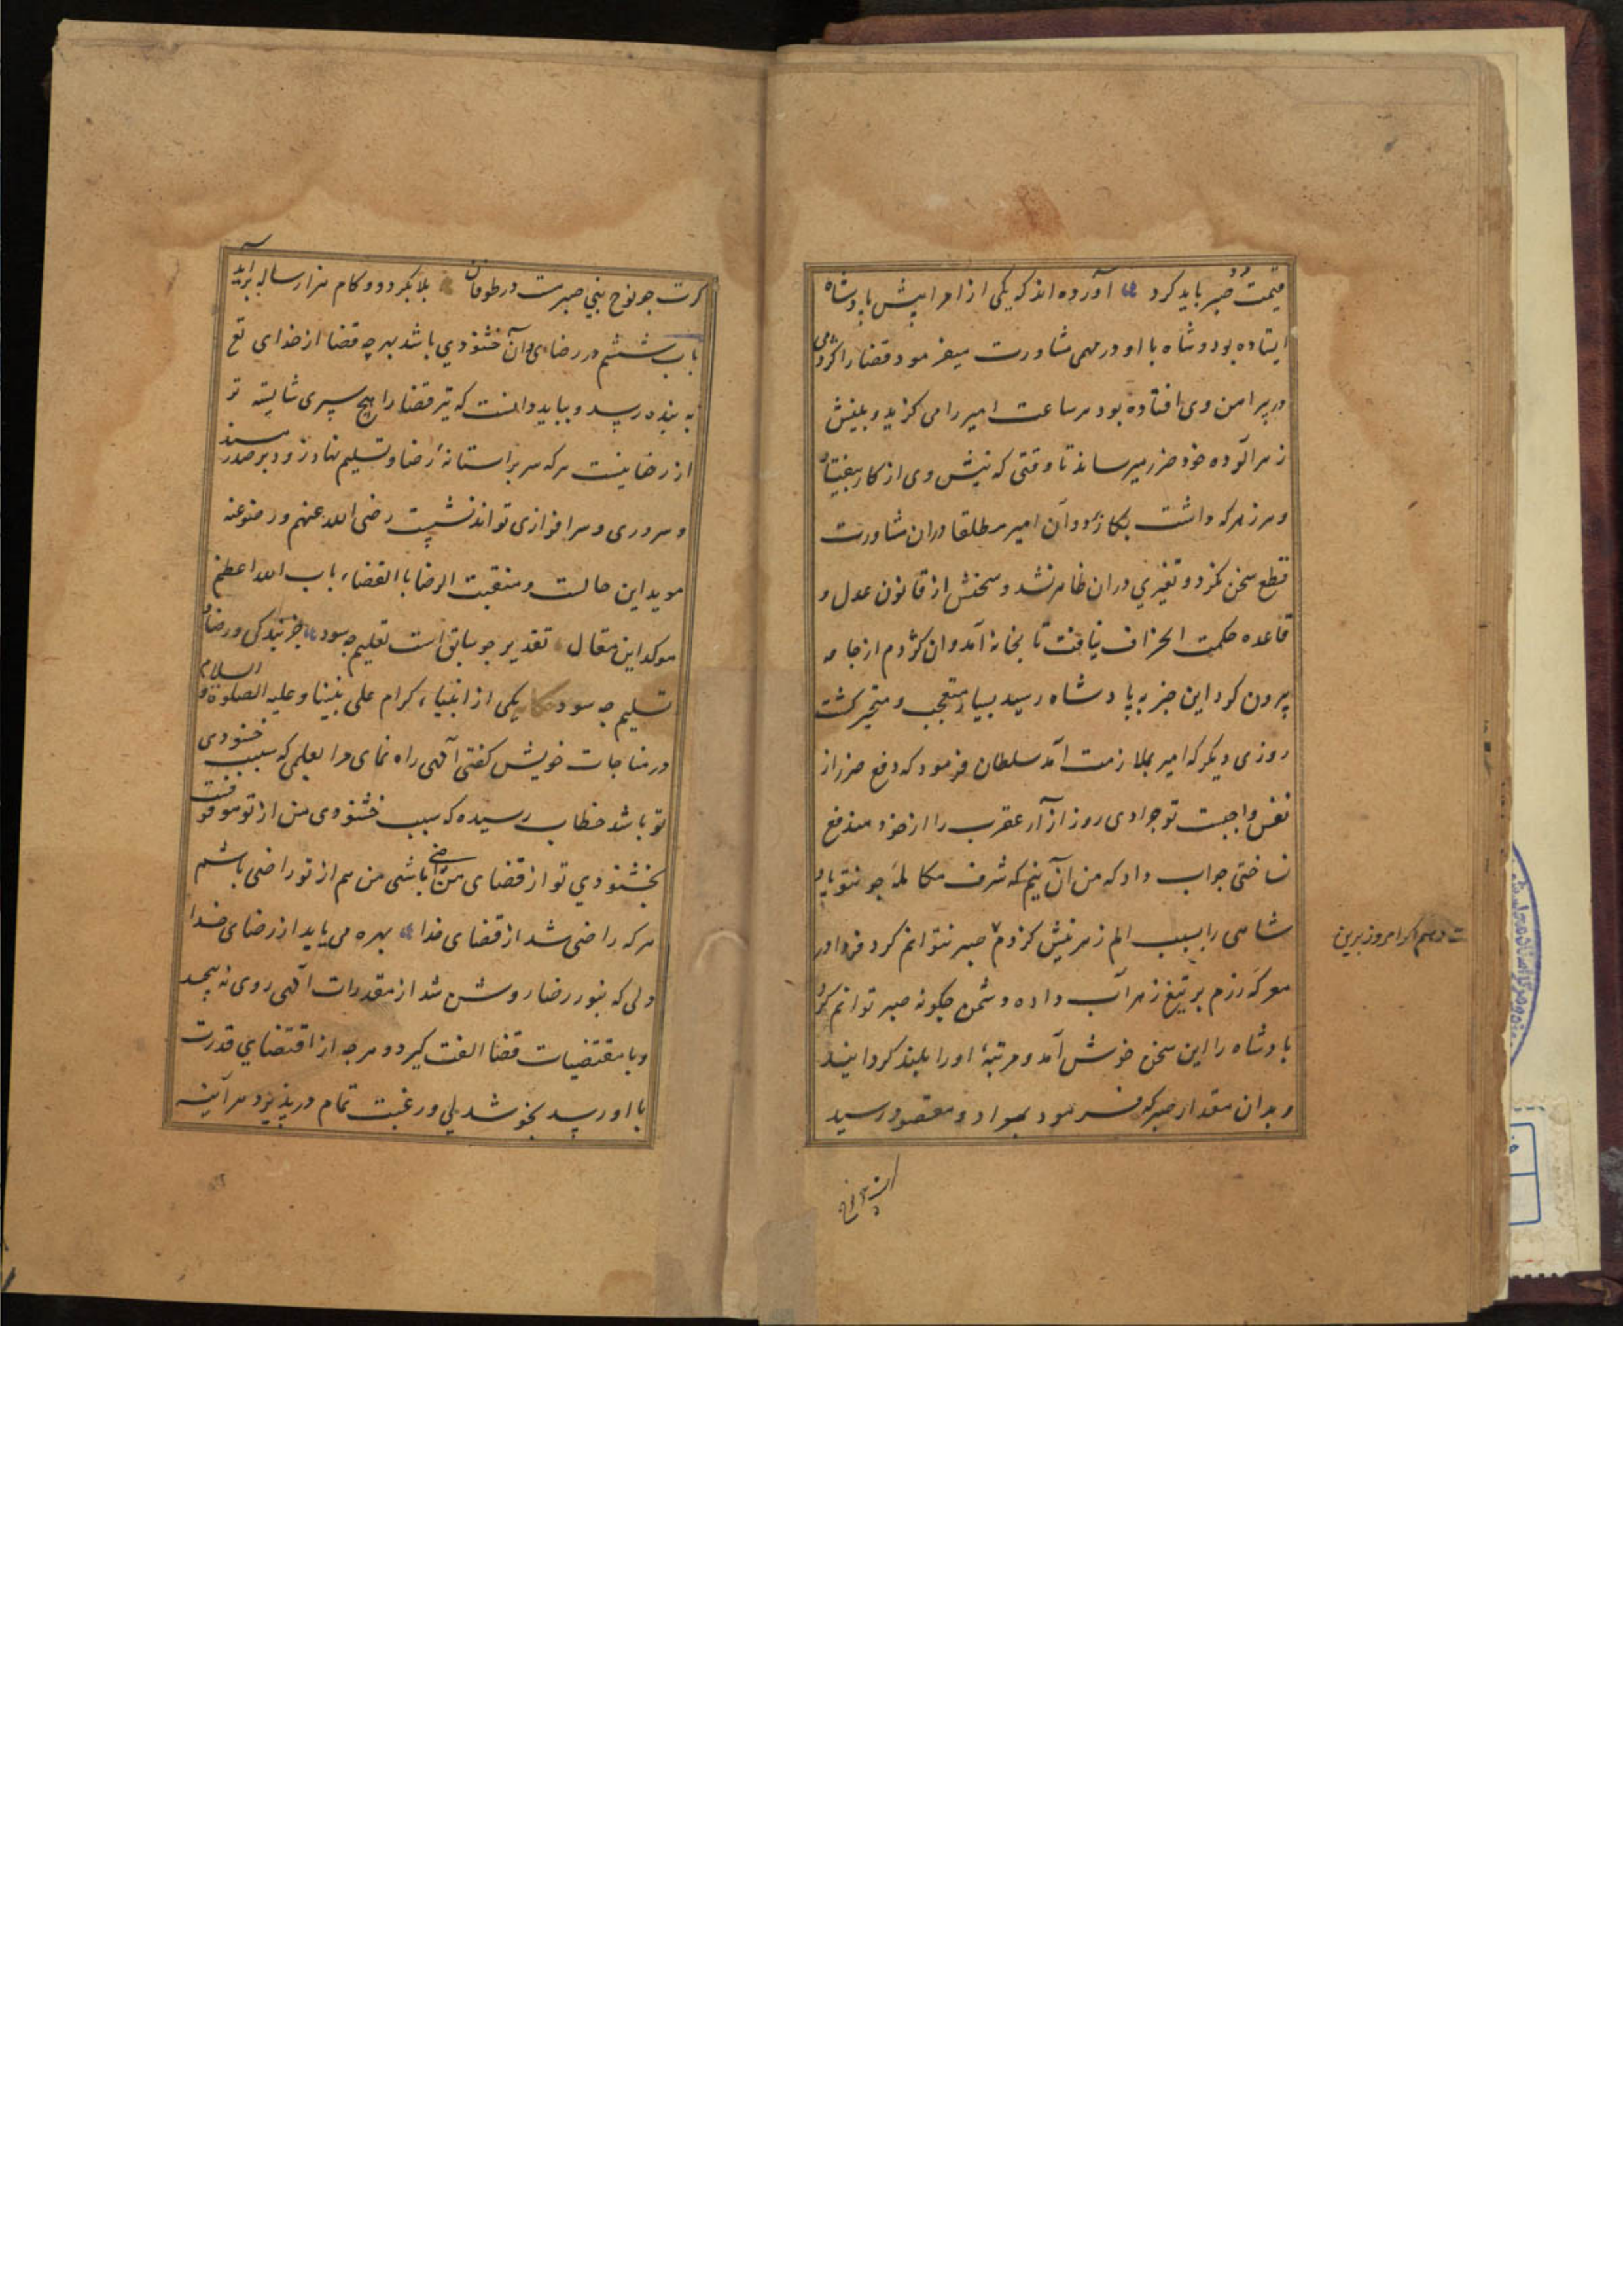 قیمت خُبر باید کرد آورده اند که یکی از امرا پیش پادشاه
ایستاده بود و شاه با او در مهمی مشاورت میفرمود قضا را کژدمی
در پیرامن وی افتاده بود هر ساعت امیر را می کزید و بنیش
زهر آلوده خود ضرر میرساند تا وقتی که نیش وی از کار بیفتاد
و هر زهر که داشت بکار برد و آن امیر مطلقا در ان مشاورت
قطع سخن نکرد و تغیری در ان ظاهر نشد و سخنش از قانون عدل و
قاعده حکمت انحراف نیافت تا بخانه آمد و ان کژدم از جامه
بیرون کرد این خبر به پادشاه رسید بسیار متعجب و متحیر کشت
روزی دیکر که امیر بملازمت آمد سلطان فرمود که دفع ضرر از
نفس واجبست تو چرا دی روز از آزار عقرب را از خود مندفع
نساختی جواب داد که من آن نیم که شرف مکالمه چو تو پاد
شاهی را بسبب الم زهر نیش کژدم صبر نتوانم کرد فردا در
معرکه رزم بر تیغ زهر آب داده دشمن چکونه صبر توانم کرد
بادشاه را این سخن خوش آمد و مرتبهٔ او را بلند کردانید
و بدان مقدار صبر که فرمود بمراد و مقصود رسید
ت دهم اکر امروز برین
کرت چو نوح نبی صبرست در طوفان بلا بکردد و کام هزار ساله برآید
باب ششم در رضا و آن خشنودی باشد بهر چه قضا از خدای تع
به بنده رسد و بباید دانست که تیر قضا را هیچ سپری شایسته تر
از رضا نیست هر که سر بر استانهٔ رضا و تسلیم نهاد زود بر صدر مسند
و سروری و سرافرازی تواند نشست رضی الله عنهم و رضوعنه
موید این حالست و منقبت الرضا باالقضاء باب الله اعظم
موکد این مقال تقدیر چو سابق است تعلیم چه سود جز بندکی و رضا و
تسلیم چه سود حکایت یکی از انبیاء کرام علی نبینا و علیه الصلوة و السلام
در مناجات خویش کفتی آلهی راه نمای مرا بعلمی که سبب خشنودی
تو باشد خطاب رسیده که سبب خشنودی من از تو موقوفست
بخشنودی تو از قضای من راضی باشی من هم از تو راضی باشم
هر که راضی شد از قضای خدا بهره می یابد از رضای خدا
دلی که بنور رضا روشن شد از مقدرات آلهی روی نه پیچد
و با مقتضیات قضا الفت کیرد و هر چه از اقتضای قدرت
با او رسد بخوشدلی و رغبت تمام در پذیرد هر آینه